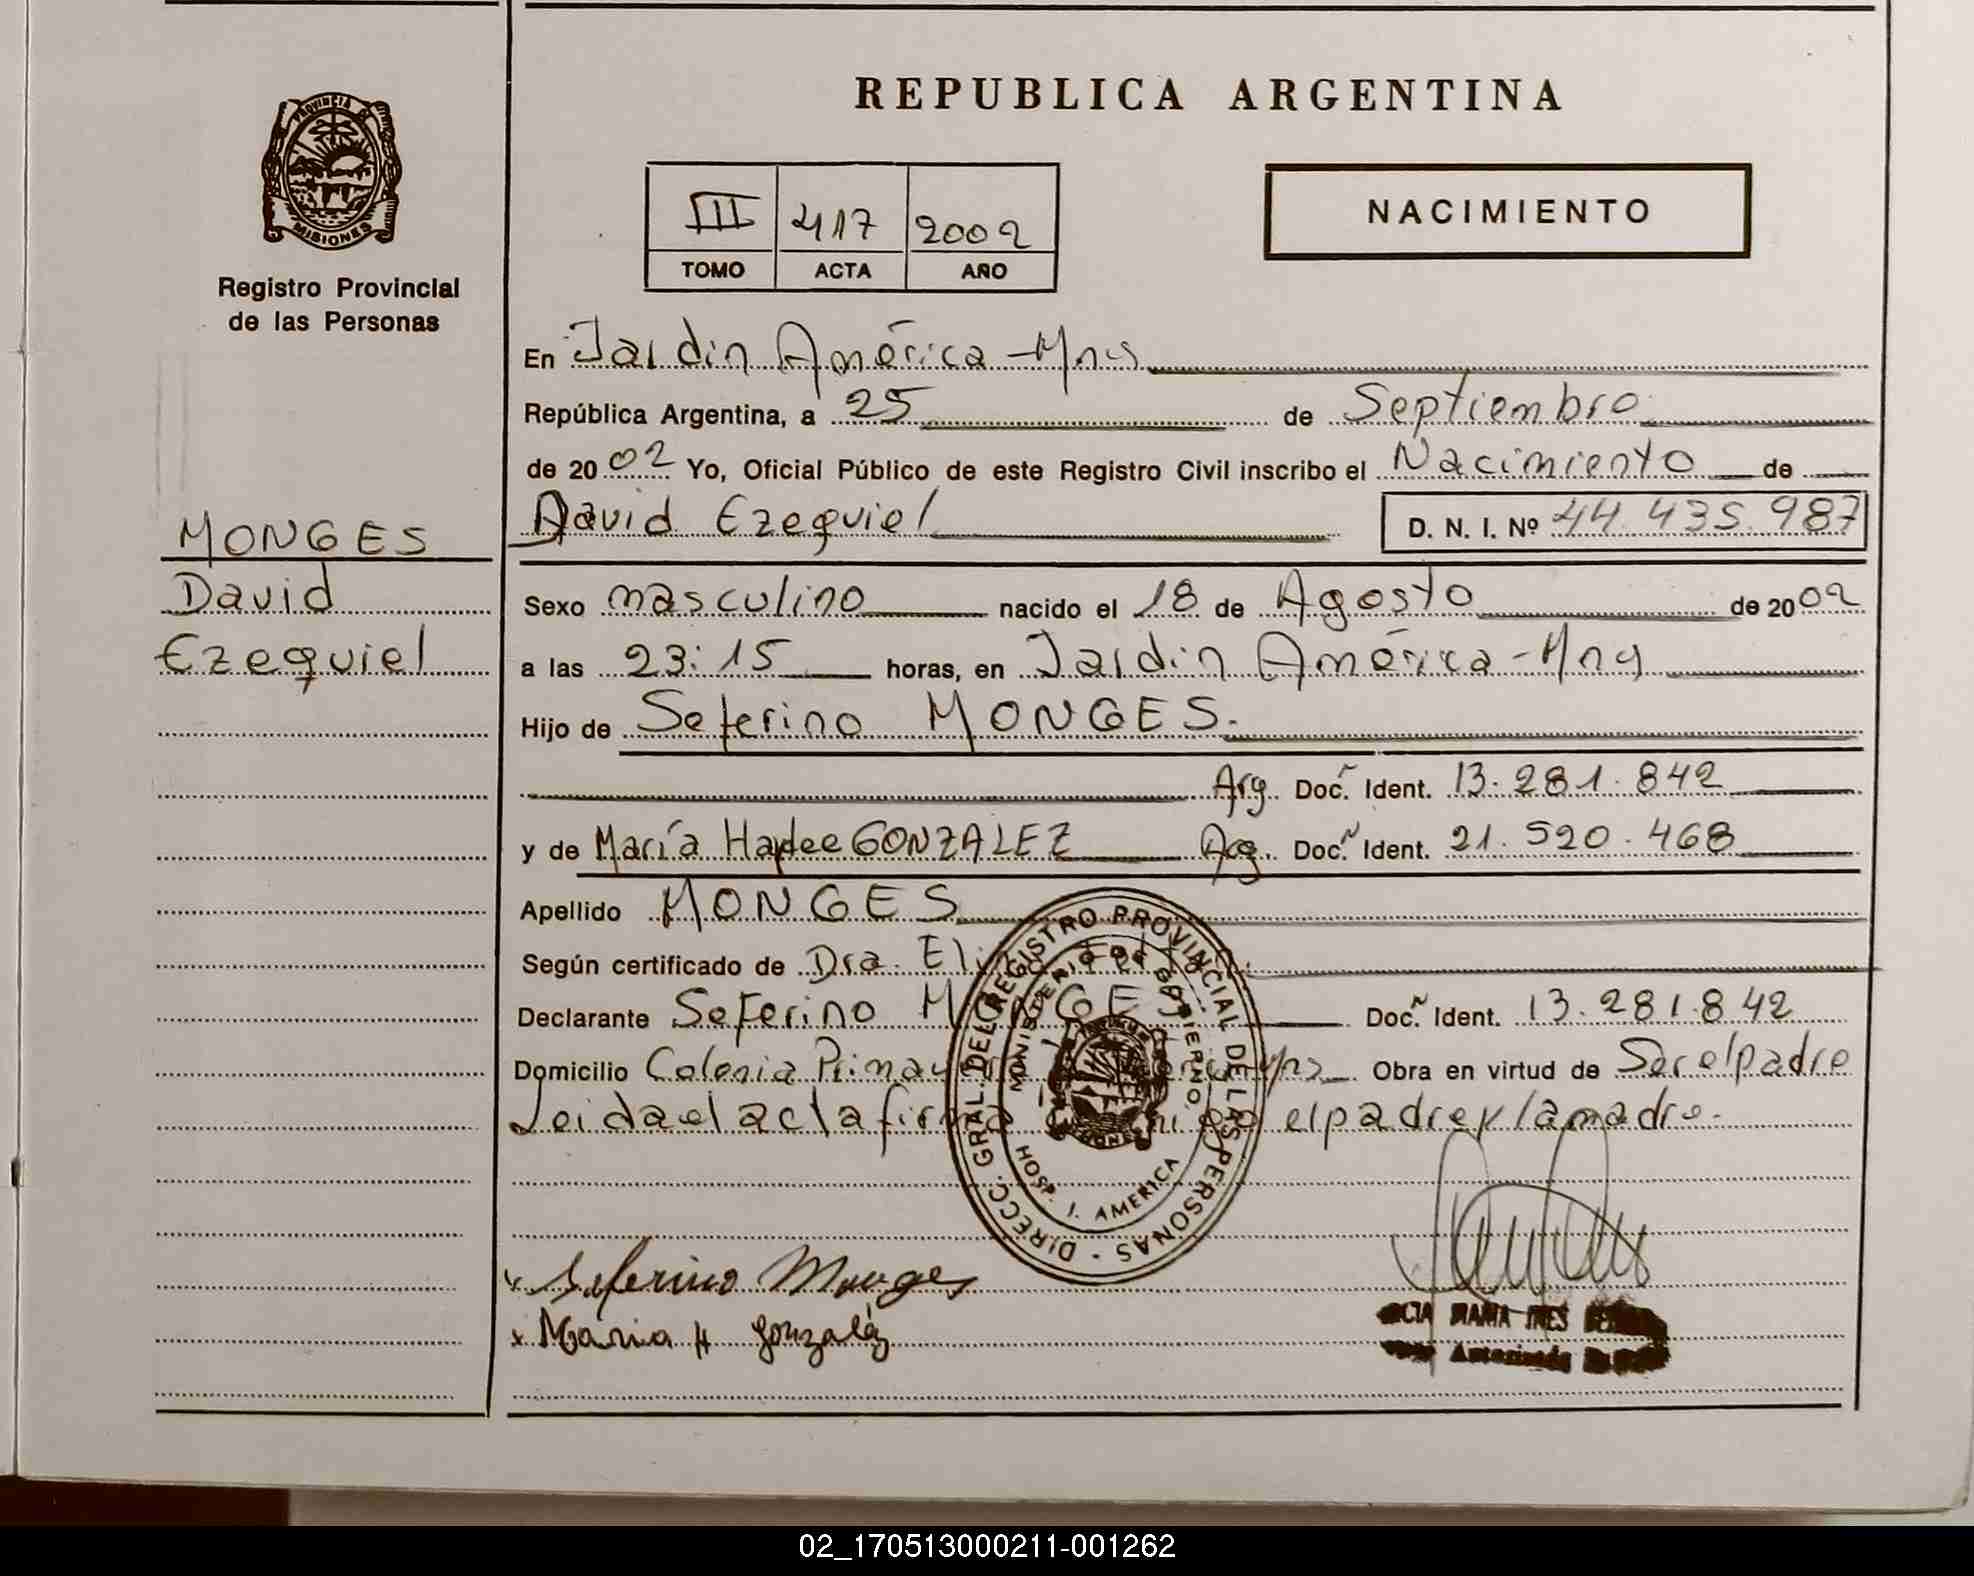 REPUBLICA ARGENTINA
PROVINCIA DE MISIONES
Registro Provincial
de las Personas
III 417 2002
TOMO ACTA AÑO
NACIMIENTO
En Jardin América - Mnes
República Argentina, a 25 de Septiembre
de 2002 Yo, Oficial Público de este Registro Civil inscribo el Nacimiento de
David Ezequiel D. N. I. Nº 44.435.987
MONGES
David
Ezequiel
Sexo masculino nacido el 18 de Agosto de 2002
a las 23:15 horas, en Jardin América - Mnes
Hijo de Seferino MONGES.
Arg. Docñ. Ident. 13.281.842
y de María Haydee GONZALEZ Arg. Docñ. Ident. 21.520.468
Apellido MONGES
Según certificado de Dra.
Declarante Seferino MONGES Docñ. Ident. 13.281.842
Domicilio Colonia Obra en virtud de Ser el padre
Leida el acta firma el padre y la madre.
DIRECC. GRAL. DEL REGISTRO PROVINCIAL DE LAS PERSONAS
MINISTERIO DE GOBIERNO
HOSP. J. AMERICA
Seferino Monges
Maria H Gonzalez
MARIA INES
Autorizada
02_170513000211-001262